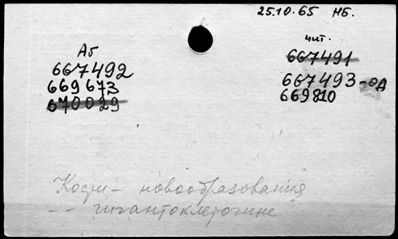 25.10.65 НБ.
Аб
667492
669673
670029
чит.
667491
667493-ОД
669810
Кости - новообразования
- - гигантоклеточные